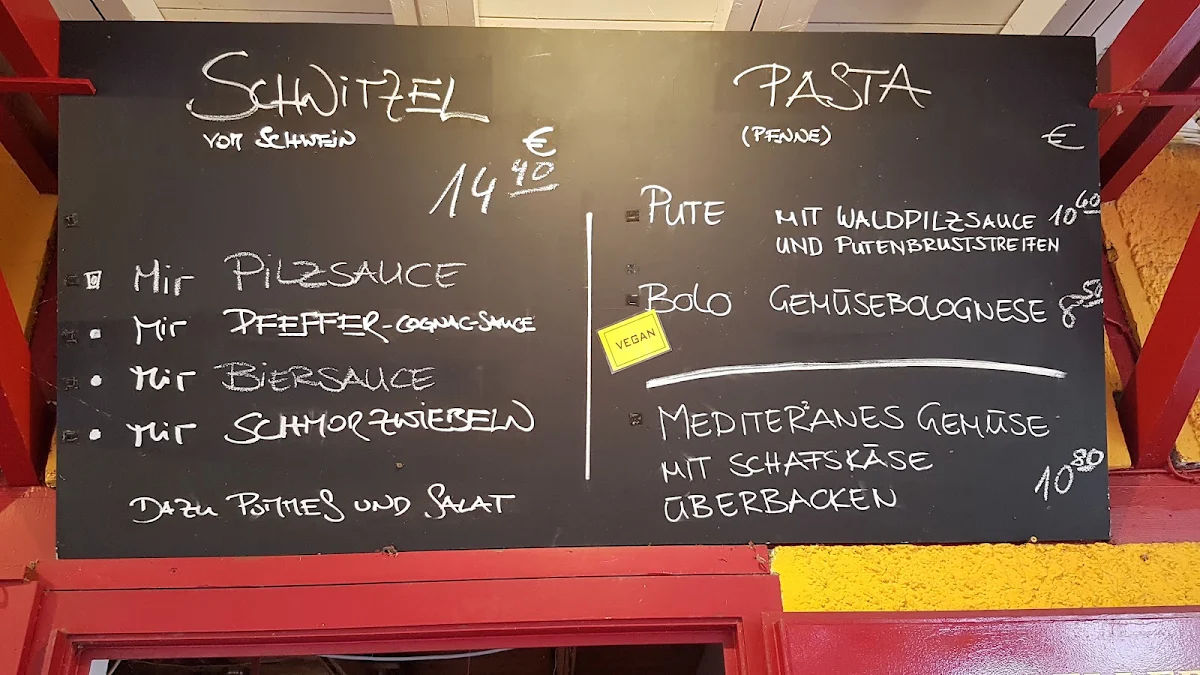 SCHNITZEL
VOM SCHWEIN
€
14 40
MIT PILZSAUCE
MIT PFEFFER-COGNAC-SAUCE
MIT BIERSAUCE
MIT SCHMORZWIEBELN
DAZU POMMES UND SALAT
PASTA
(PENNE)
€
PUTE MIT WALDPILZSAUCE 10 60
UND PUTENBRUSTSTREIFEN
BOLO GEMÜSEBOLOGNESE 8 50
VEGAN
MEDITERANES GEMÜSE
MIT SCHAFSKÄSE
ÜBERBACKEN 10 80